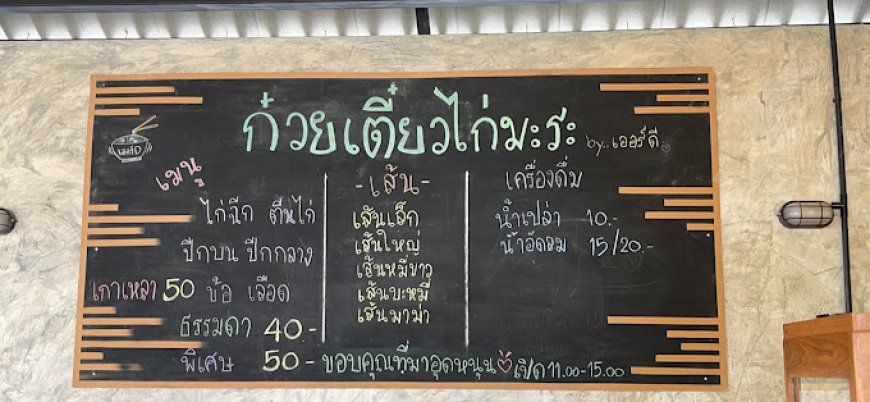 ก๋วยเตี๋ยวไก่มะระ by..เออร์ดี
เมนู
ไก่ฉีก ตีนไก่
ปีกบน ปีกกลาง
เกาเหลา 50 ข้อ เลือด
ธรรมดา 40.-
พิเศษ 50.-
-เส้น-
เส้นเล็ก
เส้นใหญ่
เส้นหมี่ขาว
เส้นบะหมี่
เส้นมาม่า
เครื่องดื่ม
น้ำเปล่า 10.-
น้ำอัดลม 15/20.-
ขอบคุณที่มาอุดหนุน เปิด 11.00-15.00